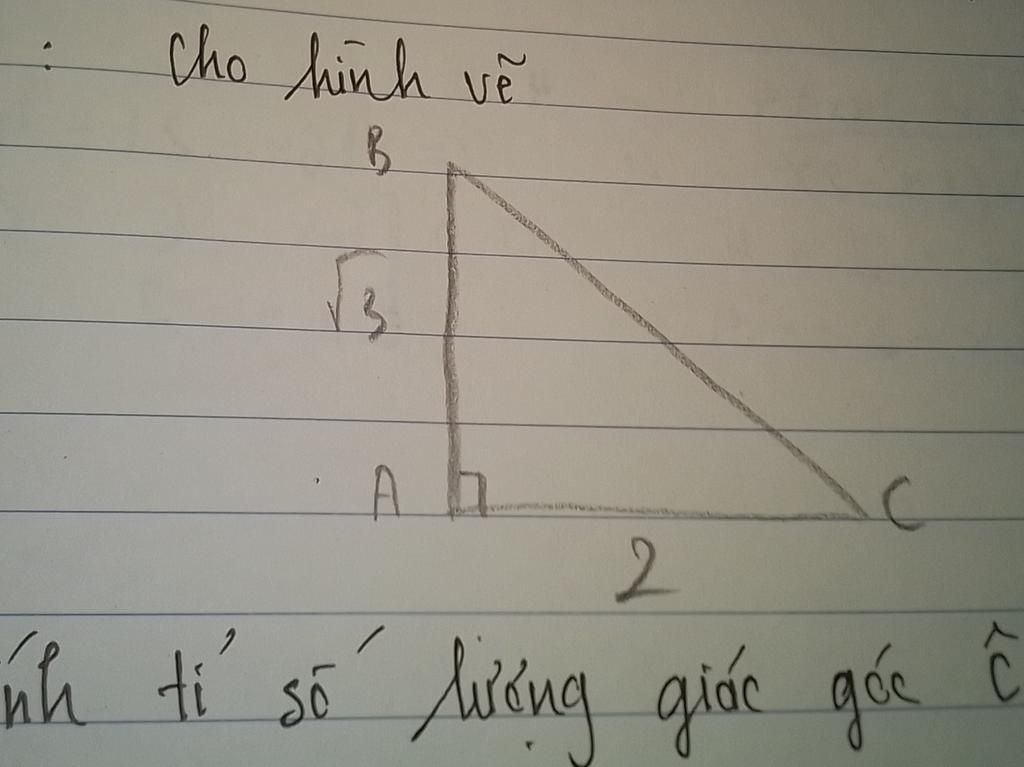 : Cho hình vẽ
B
√3
A
C
2
ính tỉ số lượng giác góc Ĉ